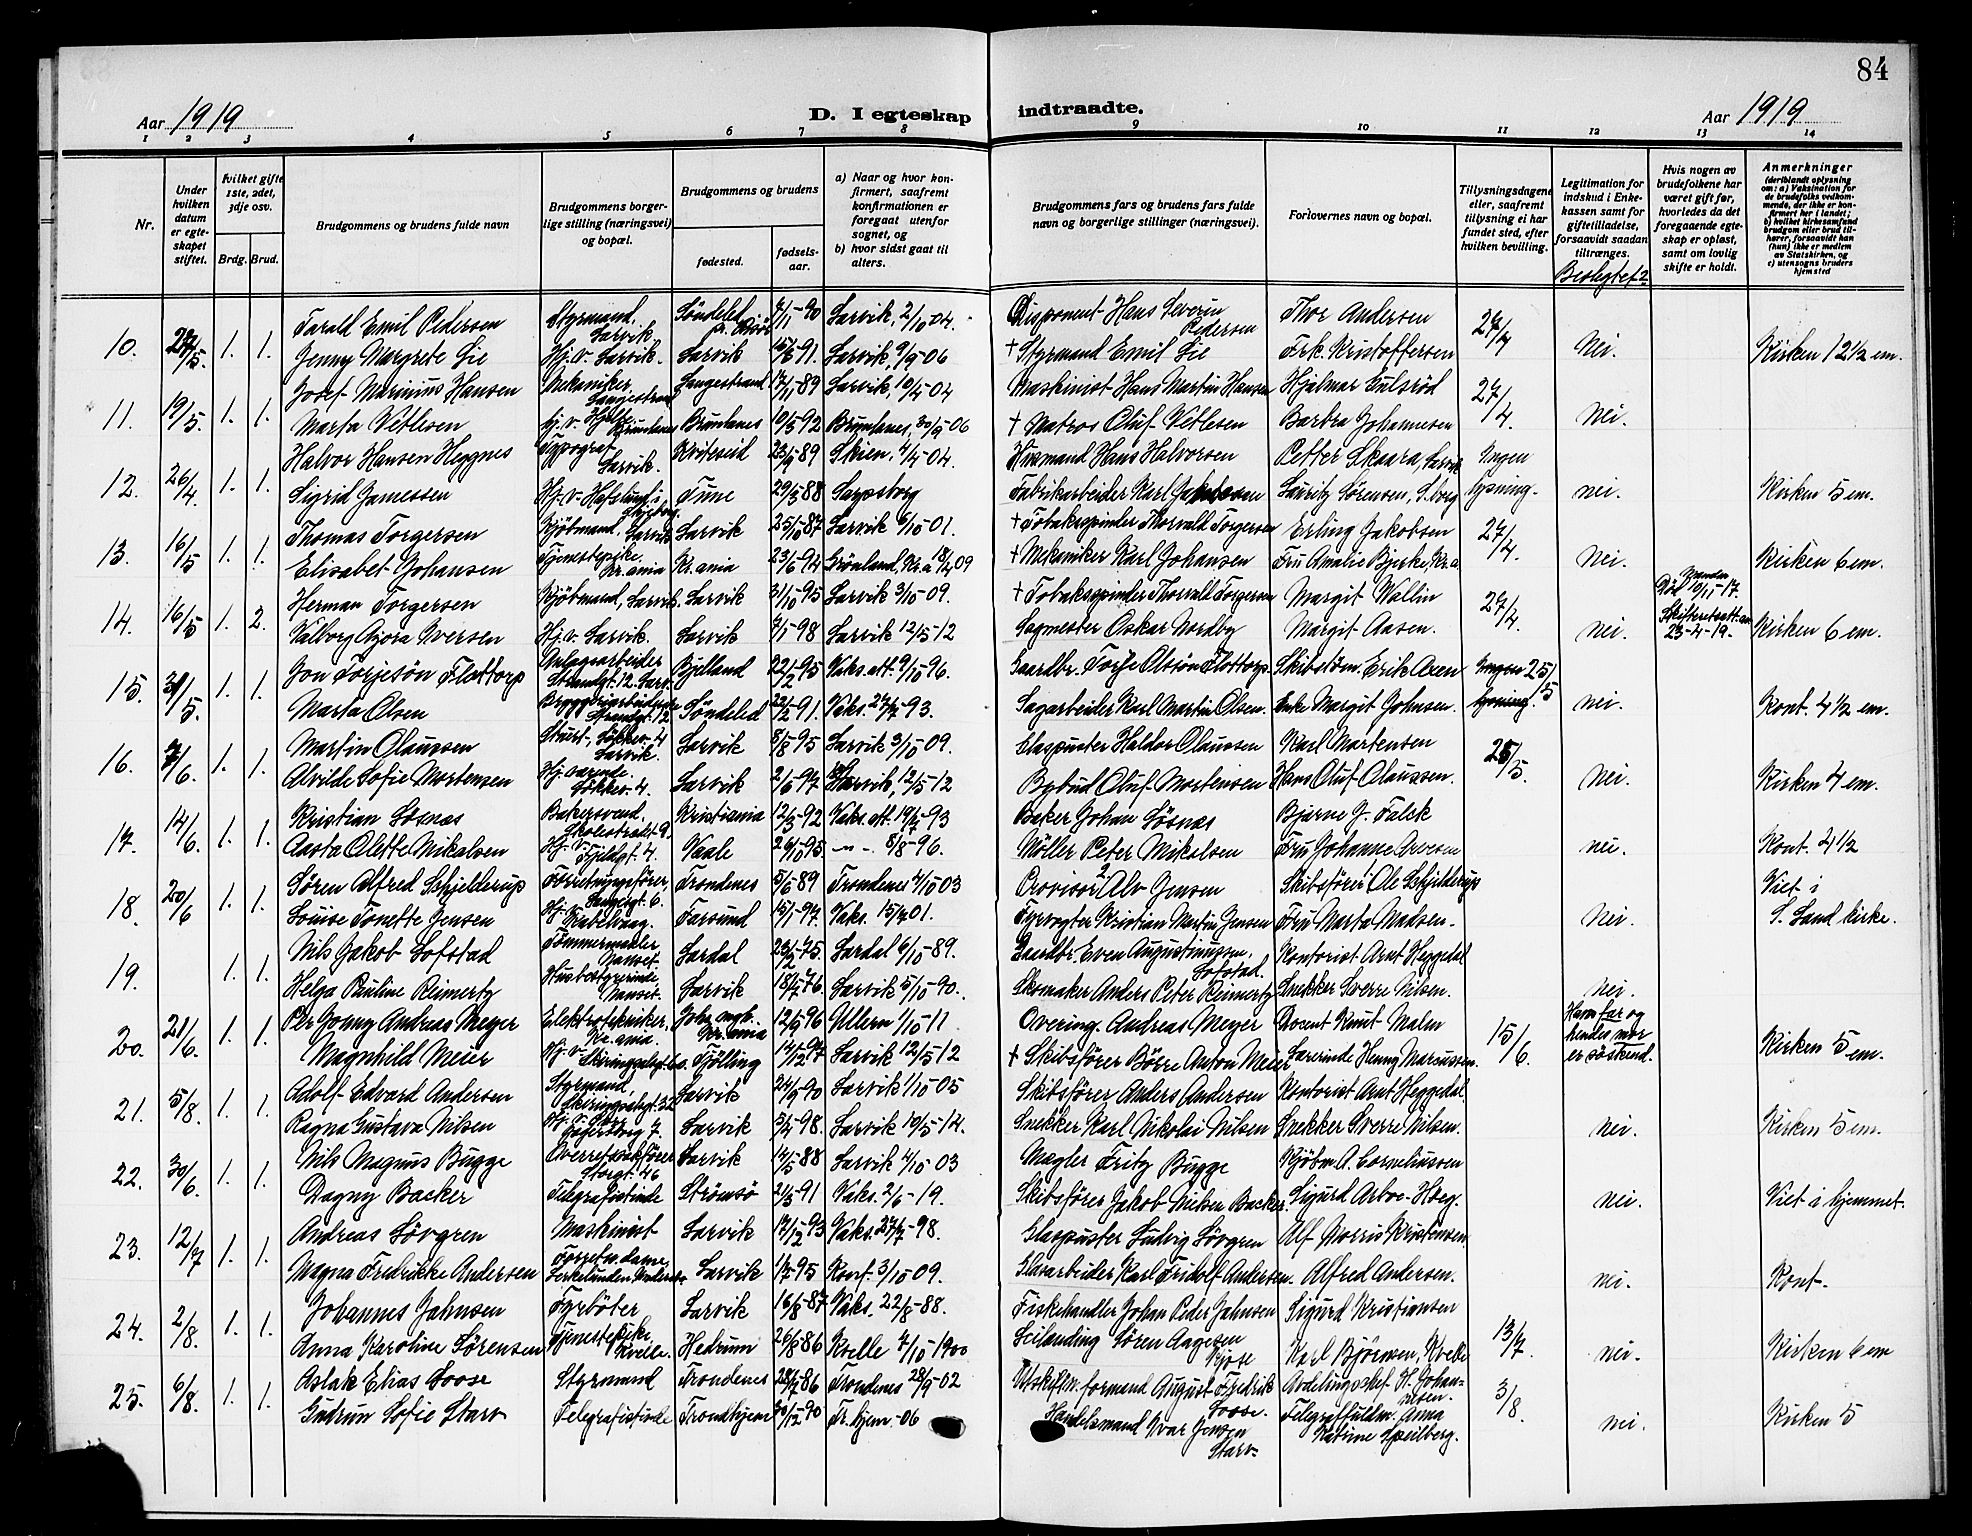 84
Aar 1919
D. I egteskap indtraadte.
Aar 1919
1 2 3 4 5 6 7 8 9 10 11 12 13 14
Nr.
Under hvilken datum er egteskapet stiftet.
hvilket gifte 1ste, 2det, 3dje osv.
Brdg. Brud.
Brudgommens og brudens fulde navn
Brudgommens borgerlige stilling (næringsvei) og bopæl.
Brudgommens og brudens
fødested.
fødselsaar.
a) Naar og hvor konfirmert, saafremt konfirmationen er foregaat utenfor sognet, og
b) hvor sidst gaat til alters.
Brudgommens fars og brudens fars fulde navn og borgerlige stillinger (næringsvei).
Forlovernes navn og bopæl.
Tillysningsdagene eller, saafremt tillysning ei har fundet sted, efter hvilken bevilling.
Legitimation for indskud i Enkekassen samt for giftetilladelse, forsaavidt saadan tiltrænges.
Beslegtet?
Hvis nogen av brudefolkene har været gift før, hvorledes da det foregaaende egteskap er opløst, samt om lovlig skifte er holdt.
Anmerkninger
(deriblandt oplysning om: a) Vaksination for de brudefolks vedkommende, der ikke er konfirmert her i landet; b) hvilket kirkesamfund brudgom eller brud tilhører, forsaavidt han (hun) ikke er medlem av Statskirken, og c) utensogns bruders hjemsted
10. 1. 1. Tarald Emil Pedersen Styrmand, Larvik Søndeled 4/11-90 Larvik, 2/10 04. Disponent Hans Severin Pedersen Thor Andersen 27/4 Nei. Kirken 12 1/2 em.
Jenny Margrete Lie Hj. v. Larvik. Larvik Larvik, 9/9-06 + Styrmand Emil Lie Frk. Kristoffersen
11. 19/5 1. 1. Josef Marinius Hansen Mekaniker, Langestrand Langestrand 17/11-89 Larvik, 10/4-04 Maskinist Hans Martin Hansen Hjalmar Eulsrød 27/4. Nei.
Marta Vetlesen Brunlanes 10/5 92 Brunlanes, 30/9-06 + Matros Oluf Vetlesen Barbra Johannesen
12. 26/4 1. 1. Halvor Hansen Heggnes Typograf Larvik. Kviteseid 23/9 89 Skien, 4/4-04. Husmand Hans Halvorsen Petter Skaara, Larvik Ingen lysning. nei. Kirken 5 em.
Sigrid Jamessen Tune 29/5 88 Sarpsborg Fabrikarbeider Karl Lauritz Sørensen, S.borg
13. 16/5 1. 1. Thomas Torgersen Kjøbmand, Larvik Larvik 25/10 87 Larvik 6/10 01. + Tobakspinder Thorvald Torgersen Erling Jakobsen 27/4. Nei. Kirken 6 em.
Elisabet Johansen Tjenestepike Kr.ania Kr.ania 23/6 94 Grønland, Kr.a 18/4 09 + Mekaniker Karl Johansen Fru Amalie Bjerke, Kr.a.
14. 16/5 1. 2. Herman Torgersen Kjøbmand, Larvik. Larvik 31/10-95 Larvik 3/10 09. + Tobakspinder Thorvald Torgersen Margit Wallin 27/4. Nei. Død 10/11-17. Skifteretsatt. av 23-4-19. Kirken 6 em.
Valborg Azora Iversen Hj. v. Larvik. Larvik 7/1-98 Larvik 12/5-12 Sagmester Oskar Nordby Margit Aasen.
15. 31/5. 1. 1. Jon Torjesøn Flottorp Anlagsarbeider Strandgt. 12. Larv. Bjelland 22/2-95 Vaks. att. 9/10 96. Gaardbr. Torje Olsøn Flottorp. Skibstøm. Erik Axen Ingen lysning. 25/5 nei. Kont. 4 1/2 em.
Marta Olsen Bryggeriarbeiderske Strandgt. 12 Søndeled 22/2-91 Vaks. 27/7-93. Sagarbeider Karl Martin Olsen. Enke Margit Johnsen.
16. 7/6. 1. 1. Martin Olaussen Larvik. Larvik 8/8-95 Larvik 3/10 09. Glaspuster Haldor Olaussen Karl Martensen 25/5. nei. Kirken 4 em.
Alvilde Sofie Mortensen Hj. værende Løkkev. 4. Larvik 2/6 97 Larvik, 12/5-12 Bybud Oluf Mortensen Hans Oluf Olaussen.
17. 14/6. 1. 1. Kristian Løsnæs Bakersvend, Skolestrædt 9. Kristiania 12/3-92 Vaks. att. 19/7-93 Baker Johan Løsnæs Bjarne J. Falck nei. Kont. 4 1/2
Aasta Olette Mikalsen Hj. v. Fjeldgt. 4. Vaale 26/10 95. -"- 8/8-96. Møller Peter Mikalsen Fru Johanne Arvesen
18. 20/6 1. 1. Søren Alfred Schjelderup Forretningsfører, Langegt. 6. Trondenes 5/6 89 Trondenes 4/10 03 Provisor Alv Jensen Skibsfører Ole Schjelderup Nei. Viet i S. Sand kirke.
Louise Tonette Jensen Farsund 15/1-97. Vaks. 15/7 01. Fyrvogter Kristian Martin Jensen Fru Marta Madsen.
19. 1. 1. Nils Jakob Lofstad Tømmermæler Nanset. Lardal 23/2-75. Lardal 6/10-89. Gaardbr. Even Augustinussen Lofstad. Kontorist Arnt Heggedal nei.
Helga Pauline Reimertz Husbestyrerinde Nanset. Larvik 18/7 76. Larvik 5/10-90. Skomaker Anders Peter Reimertz Snekker Sverre Nilsen.
20. 21/6. 1. 1. Per Jonny Andreas Meyer Elektrotekniker, Kr.ania. Kr.ania 12/9 96 Ullern 1/10-11 Overing. Andreas Meyer Docent Knut Malm 15/6. Hans far og hendes mor er søskend. Kirken 5 em.
Magnhild Meier Tjølling 14/12 97 Larvik 12/5 12 + Skibsfører Børre Anton Meier Lærerinde Henny Marcussen.
21. 5/8. 1. 1. Adolf Edvard Andersen Styrmand, Skiringssalgt. 32 Larvik 24/9 90 Larvik 1/10-05 Skibsfører Anders Andersen Kontorist Arnt Heggedal. nei. Kirken 5 em.
Ragna Gustava Nilsen Larvik 3/4-98. Larvik 10/5-14. Snekker Karl Nikolai Nilsen Snekker Sverre Nilsen.
22. 30/6. 1. 1. Nils Magnus Bugge Overretssakfører Storgt. 46 Larvik 14/5 88 Larvik 4/10 03 Mægler Fritz Bugge Kjøbm. A. Corneliussen nei. Viet i hjemmet.
Dagny Backer Telegrafistinde Strømsø 21/5-91 Vaks. 2/6-19. Skibsfører Jakob Nielsen Backer. Sigurd Arboe-Høeg.
23. 12/7 1. 1. Andreas Løvgren Maskinist Larvik 17/12 93 Vaks. 27/7-98. Glaspuster Ludvig Løvgren Alf Morris Kristensen. nei. Kont.
Magna Fredrikke Andersen Forretn. dame, Larvik 1/7-95 Konf. 3/10 09. Glasarbeider Karl Fridolf Andersen. Alfred Andersen.
24. 2/8. 1. 1. Johannes Jahnsen Fyrbøter Larvik 16/8-87 Vaks. 22/8-88. Fiskehandler Johan Peder Jahnsen Sigurd Kristiansen 13/7. nei. Kirken 6 em
Anna Karoline Sørensen Tjenestepike Kvelle. Hedrum 26/8 86 Kvelle 7/10 1900 Søren Aagesen Kjose Karl Bjørnsen, Kvelle
25. 6/8. 1. 1. Aslak Elias Loose Styrmand Trondenes 28/7-86 Trondenes 28/9-02 Utskiftn. formand August Fredrik Loose. Avdelingschef H. Johannesen. 3/8. nei. Kirken 5
Gudrun Sofie Starv Telegrafistinde Trondhjem 30/12-90 Tr.hjem.-06 Handelsmand Ivar Jensen Starv. Telegraffuldm. Anna Katrine Speilberg.